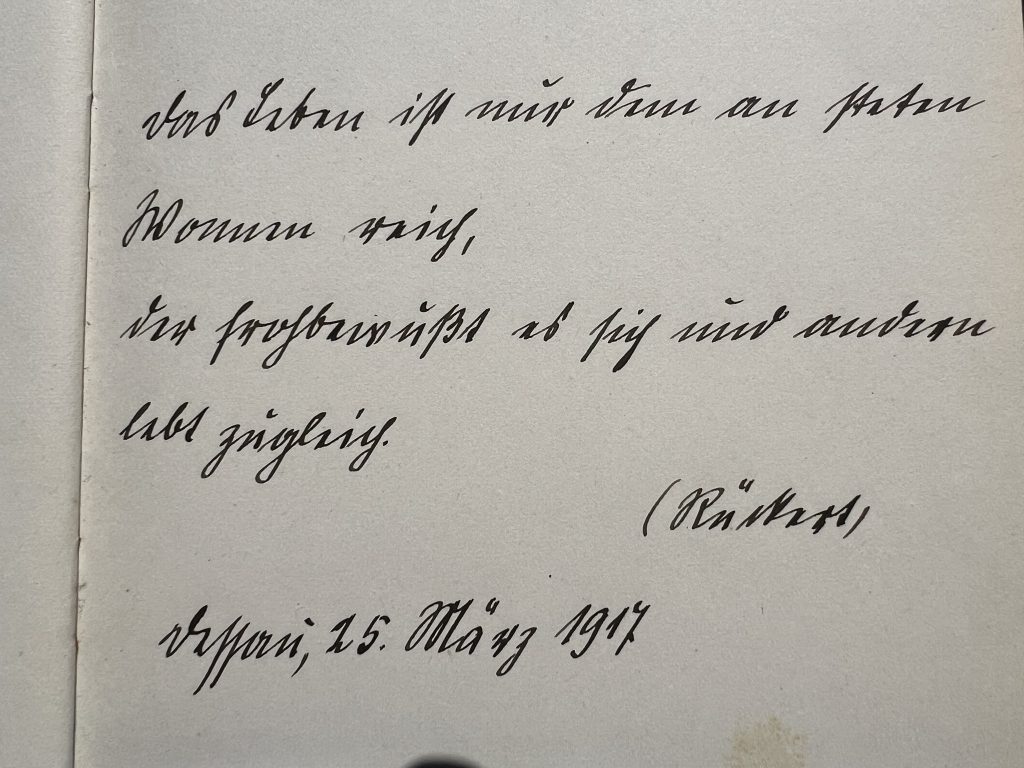 Das Leben ist nur dem an steten
Wonnen reich,
der frohbewußt es sich und andern
lebt zugleich.
(Rückert)
Dessau, 25. März 1917